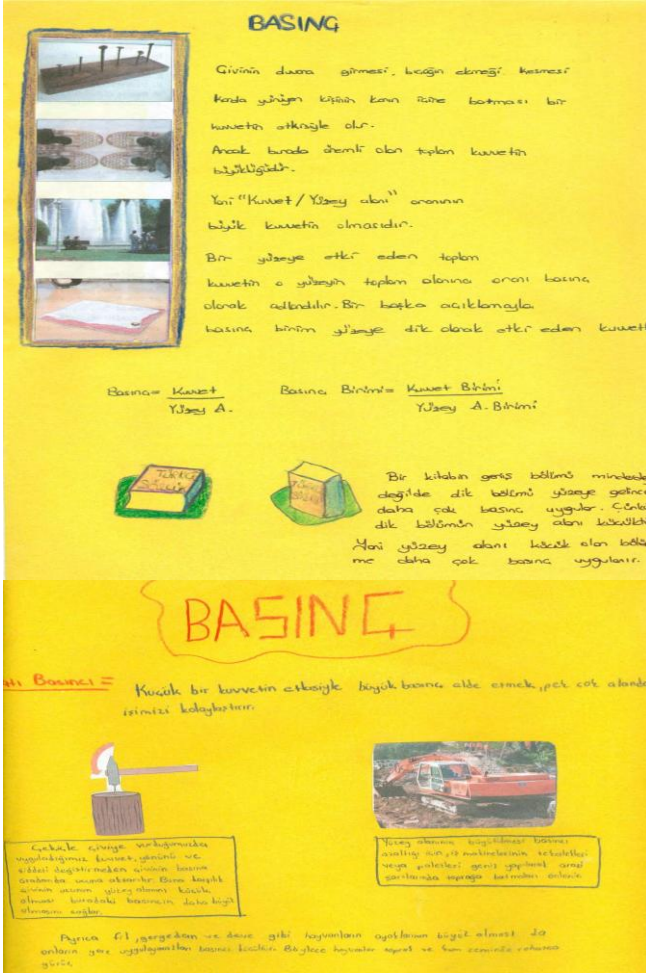 BASINÇ
Çivinin duvara girmesi, bıçağın ekmeği kesmesi
Karda yürüyen kişinin karın içine batması bir
kuvvetin etkisiyle olur.
Ancak burada önemli olan toplam kuvvetin
büyüklüğüdür.
Yani "Kuvvet / Yüzey alanı" oranının
büyük kuvvetin olmasıdır.
Bir yüzeye etki eden toplam
kuvvetin o yüzeyin toplam alanına oranı basınç
olarak adlandılır. Bir başka açıklamayla
basınç birim yüzeye dik olarak etki eden kuvvet
Basınç= Kuvvet Basınç Birimi= Kuvvet Birimi
Yüzey A. Yüzey A. Birimi
TÜRKÇE SÖZLÜK
Bir kitabın geniş bölümü
değilde dik bölümü yüzeye gelince
daha çok basınç uygular. Çünkü
dik bölümün yüzey alanı küçüktü
Yani yüzey alanı küçük olan bölü
me daha çok basınç uygulanır.
BASINÇ
atı Basıncı = Küçük bir kuvvetin etkisiyle büyük basınç elde etmek, pek çok alanda
işimizi kolaylaştırır.
Çekiçle çiviye vurduğumuzda
uyguladığımız kuvvet, yönünü ve
şiddeti değiştirmeden çivinin basına
aradan da ucuna aktarılır. Buna karşılık
çivinin ucunun yüzey alanını küçük
olması buradaki basıncın daha büyük
olmasını sağlar.
Yüzey alanının büyütülmesi basıncı
azalttığı için, iş makinelerinin tekerlekleri
veya paletleri geniş yapılarak arazi
şartlarında toprağa batmaları önlenir
Ayrıca fil, gergedan ve deve gibi hayvanların ayaklarının büyük olması da
onların yere uygulayacakları basıncı küçültür. Böylece hayvanlar toprak ve kum zeminde rahatça
yürür.